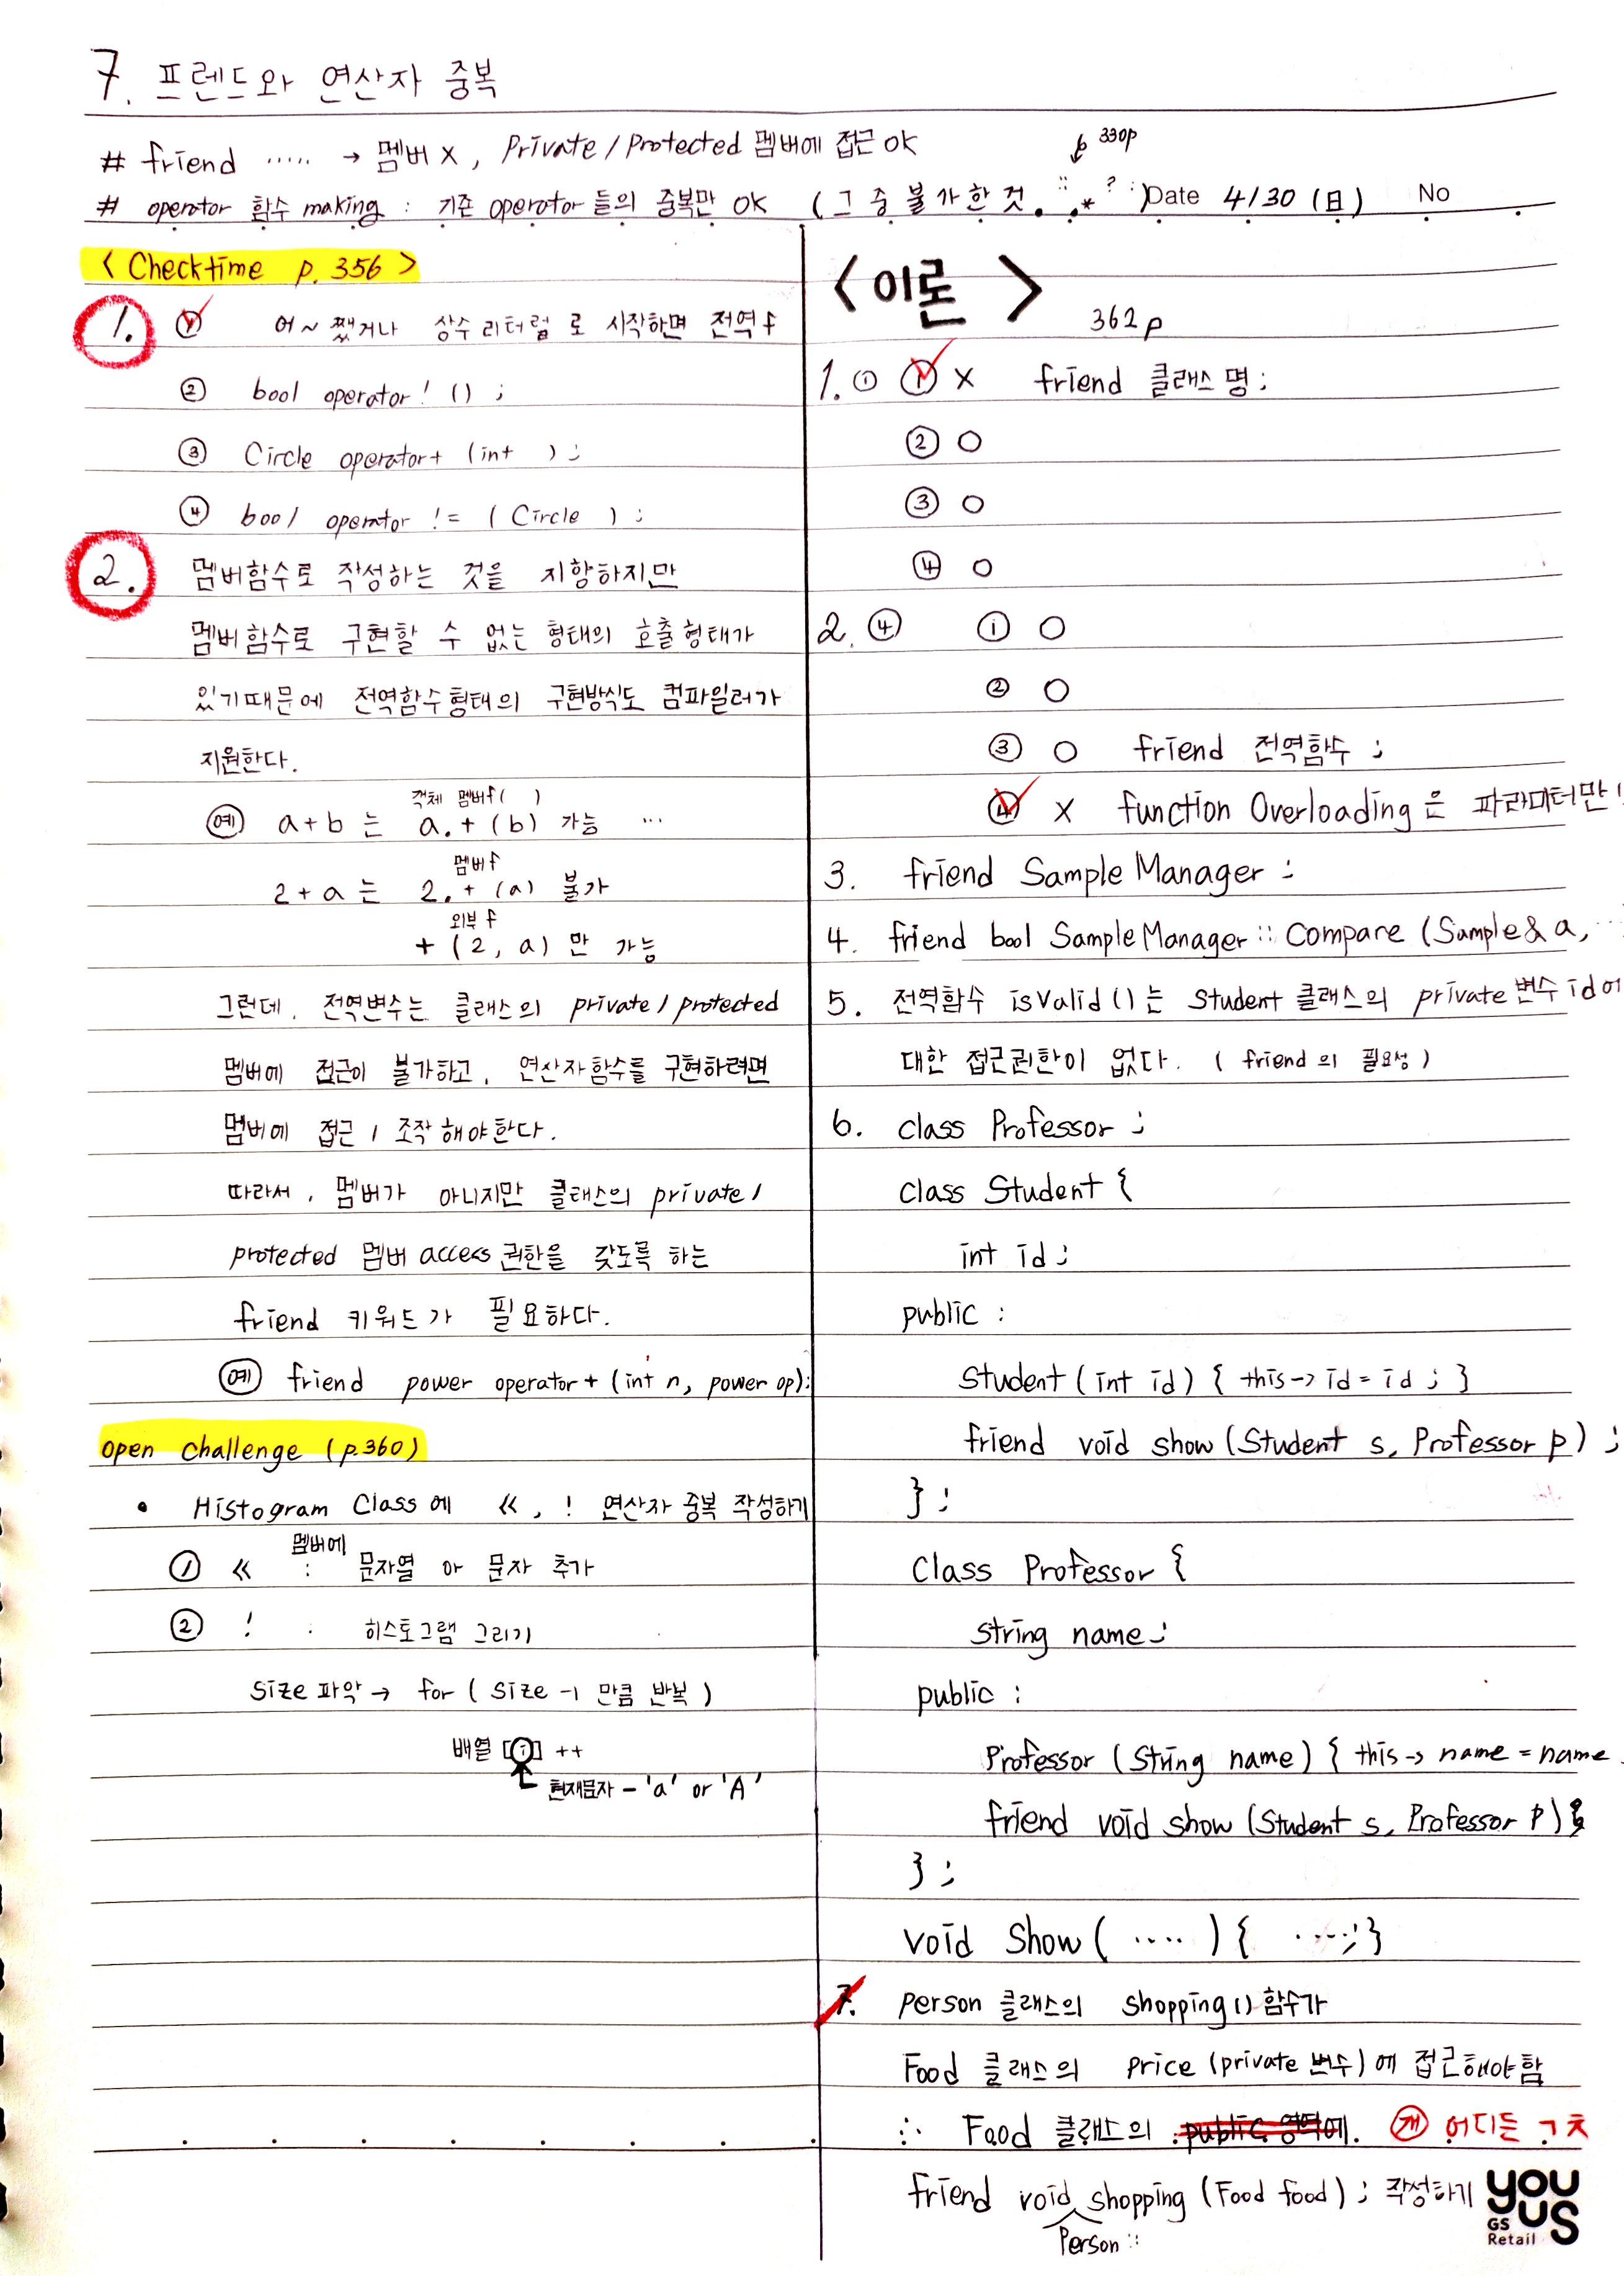 7. 프렌드와 연산자 중복
# friend ..... → 멤버 X, Private / Protected 멤버에 접근 OK
330p
# operator 함수 making : 기존 operator 들의 중복만 OK (그 중 불가한 것 . .* :: ?:)
Date 4/30 (日) No
< Checktime p. 356 >
1. ① 어~쨌거나 상수 리터럴 로 시작하면 전역 f
② bool operator! () ;
③ Circle operator+ (int ) ;
④ bool operator != ( Circle ) ;
2. 멤버함수로 작성하는 것을 지향하지만
멤버함수로 구현할 수 없는 형태의 호출형태가
있기때문에 전역함수형태의 구현방식도 컴파일러가
지원한다.
객체 멤버f( )
예 a+b 는 a.+(b) 가능 ...
멤버f
2+a 는 2.+(a) 불가
외부 f
+ (2, a) 만 가능
그런데, 전역변수는 클래스의 private / protected
멤버에 접근이 불가하고, 연산자함수를 구현하려면
멤버에 접근 / 조작해야한다.
따라서, 멤버가 아니지만 클래스의 private /
protected 멤버 access 권한을 갖도록 하는
friend 키워드가 필요하다.
예 friend power operator+ (int n, power op);
open challenge (p.360)
• Histogram Class에 <<, ! 연산자 중복 작성하기
멤버에
① << : 문자열 or 문자 추가
② ! : 히스토그램 그리기
Size 파악 → for ( size -1 만큼 반복 )
배열 [i] ++
현재문자 - 'a' or 'A'
< 이론 >
362p
1. ① ① X friend 클래스명;
② O
③ O
④ O
2. ④ ① O
② O
③ O friend 전역함수 ;
④ X function Overloading은 파라미터만!
3. friend SampleManager ;
4. friend bool SampleManager :: Compare (Sample& a, ...
5. 전역함수 isValid ()는 Student 클래스의 private 변수 id에
대한 접근권한이 없다. ( friend 의 필요성 )
6. class Professor ;
class Student {
int id ;
public :
Student ( int id ) { this→ id = id ; }
friend void show (Student s, Professor p) ;
} ;
Class Professor {
String name ;
public :
Professor (String name) { this→ name = name
friend void show (Student s, Professor p) ;
} ;
void Show ( .... ) { ....; }
7. person 클래스의 shopping() 함수가
Food 클래스의 price (private 변수) 에 접근해야함
∴ Food 클래스의 public 영역에. 어디든
friend void shopping (Food food) ; 작성하기
Person ::
YOU US
GS Retail